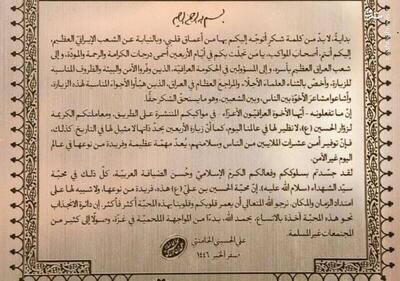 بسم الله الرحمن الرحیم
بدايةً، لابدّ من كلمة شكرٍ أتوجّه إليكم بها من أعماق قلبي، وبالنيابة عن الشعب الإيرانيّ العظيم،
إليكم أنتم أصحاب المواكب، يا من تجلّت بكم في أيّام الأربعين أسمى درجات الكرامة والرحمة والمودّة، وإلى
شعب العراق العظيم بأسره، وإلى المسؤولين في الحكومة العراقيّة، الذين وفّروا الأمن والبيئة والظروف المناسبة
للزيارة، وأخصّ بالثناء العلماء الأجلّاء والمراجع العظام في العراق، الذين هيّأوا الأجواء المناسبة لهذه الزيارة،
وأشاعوا مشاعر الأخوّة بين الناس، وبين الشعبين، وهو ما يستحقّ الشكر حقًّا.
إنّ ما تفعلونه - أيّها الأخوة العراقيّون الأعزّاء - في مواكبكم المنتشرة على الطريق، ومعاملتكم الكريمة
لزوّار الحسين (ع)، لا نظير لها في عالمنا اليوم، كما أنّ زيارة الأربعين بحدّ ذاتها لا مثيل لها في التاريخ. كذلك،
فإنّ توفير أمن عشرات الملايين من الناس وسلامتهم، يُعدّ مهمّة عظيمة وفريدة من نوعها في عالم
اليوم غير الآمن.
لقد جسّدتم بسلوككم وفعالكم الكرم الإسلاميّ وحُسن الضيافة العربيّة، كلّ ذلك في محبّة
سيّد الشهداء (سلام الله عليه). إنّ محبّة الحسين بن علي (ع) هذه، فريدة من نوعها، ولا شبيه لها على
امتداد الزمان والمكان. نرجو الله تعالى أن يعمر قلوبكم وقلوبنا بهذه المحبّة أكثر فأكثر. إن دائرة الانجذاب
نحو هذه المحبّة آخذة بالاتساع، بحمد الله، بدءًا من المواجهة الملحميّة في غزّة، وصولًا إلى كثيرٍ من
المجتمعات غير المسلمة.
علي الحسيني الخامنئي
صفر الخير ١٤٤٦